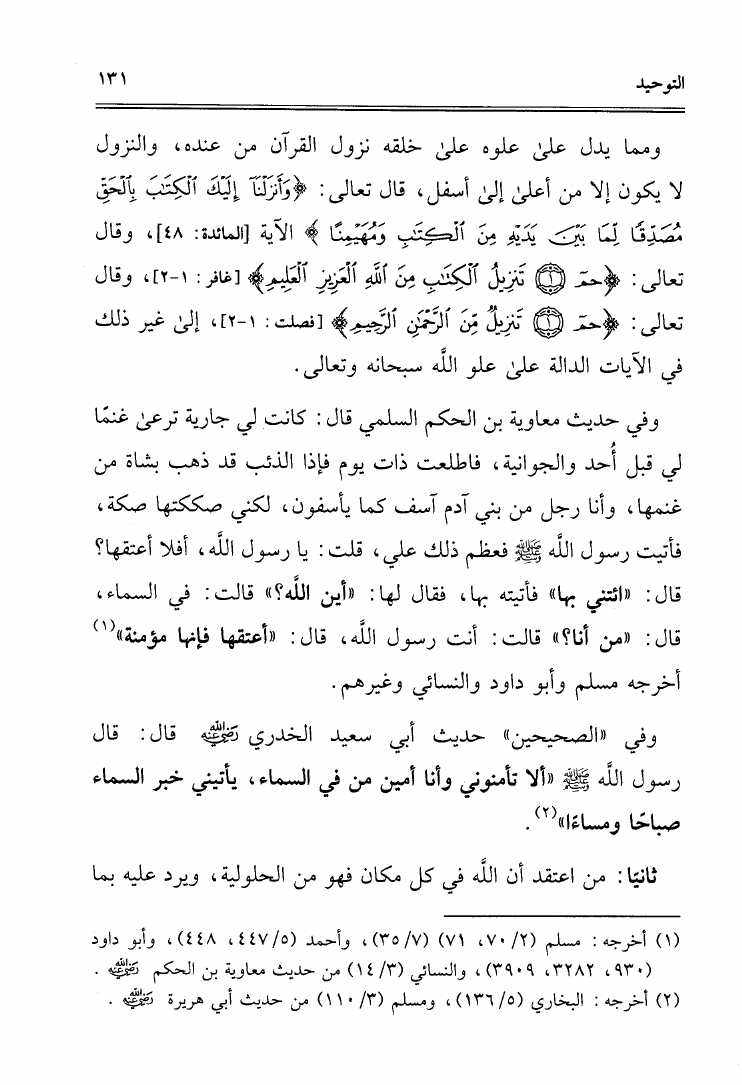 التوحيد ١٣١
ومما يدل علىٰ علوه علىٰ خلقه نزول القرآن من عنده، والنزول
لا يكون إلا من أعلىٰ إلىٰ أسفل، قال تعالى: ﴿وَأَنزَلْنَآ إِلَيْكَ ٱلْكِتَٰبَ بِٱلْحَقِّ
مُصَدِّقًا لِّمَا بَيْنَ يَدَيْهِ مِنَ ٱلْكِتَٰبِ وَمُهَيْمِنًا﴾ الآية [المائدة: ٤٨]، وقال
تعالى: ﴿حمٓ ۝١ تَنزِيلُ ٱلْكِتَٰبِ مِنَ ٱللَّهِ ٱلْعَزِيزِ ٱلْعَلِيمِ﴾ [غافر: ١-٢]، وقال
تعالى: ﴿حمٓ ۝١ تَنزِيلٌ مِّنَ ٱلرَّحْمَٰنِ ٱلرَّحِيمِ﴾ [فصلت: ١-٢]، إلىٰ غير ذلك
في الآيات الدالة علىٰ علو اللَّه سبحانه وتعالى.
وفي حديث معاوية بن الحكم السلمي قال: كانت لي جارية ترعىٰ غنمًا
لي قبل أُحد والجوانية، فاطلعت ذات يوم فإذا الذئب قد ذهب بشاة من
غنمها، وأنا رجل من بني آدم آسف كما يأسفون، لكني صككتها صكة،
فأتيت رسول اللَّه ﷺ فعظم ذلك علي، قلت: يا رسول اللَّه، أفلا أعتقها؟
قال: «ائتني بها» فأتيته بها، فقال لها: «أين اللَّه؟» قالت: في السماء،
قال: «من أنا؟» قالت: أنت رسول اللَّه، قال: «أعتقها فإنها مؤمنة»(١)
أخرجه مسلم وأبو داود والنسائي وغيرهم.
وفي «الصحيحين» حديث أبي سعيد الخدري رَضِيَ اللَّهُ عَنْهُ قال: قال
رسول اللَّه ﷺ «ألا تأمنوني وأنا أمين من في السماء، يأتيني خبر السماء
صباحًا ومساءًا»(٢).
ثانيًا: من اعتقد أن اللَّه في كل مكان فهو من الحلولية، ويرد عليه بما
(١) أخرجه: مسلم (٢/ ٧٠، ٧١) (٧/ ٣٥)، وأحمد (٥/ ٤٤٧، ٤٤٨)، وأبو داود
(٩٣٠، ٣٢٨٢، ٣٩٠٩)، والنسائي (٣/ ١٤) من حديث معاوية بن الحكم رَضِيَ اللَّهُ عَنْهُ.
(٢) أخرجه: البخاري (٥/ ١٣٦)، ومسلم (٣/ ١١٠) من حديث أبي هريرة رَضِيَ اللَّهُ عَنْهُ.